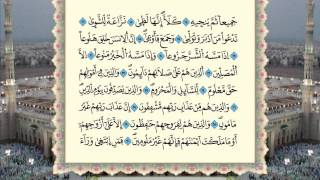 جَمِيعًا ثُمَّ يُنجِيهِ ۝ كَلَّا إِنَّهَا لَظَىٰ ۝ نَزَّاعَةً لِّلشَّوَىٰ ۝
تَدْعُوا۟ مَنْ أَدْبَرَ وَتَوَلَّىٰ ۝ وَجَمَعَ فَأَوْعَىٰٓ ۝ إِنَّ ٱلْإِنسَٰنَ خُلِقَ هَلُوعًا ۝
إِذَا مَسَّهُ ٱلشَّرُّ جَزُوعًا ۝ وَإِذَا مَسَّهُ ٱلْخَيْرُ مَنُوعًا ۝ إِلَّا
ٱلْمُصَلِّينَ ۝ ٱلَّذِينَ هُمْ عَلَىٰ صَلَاتِهِمْ دَآئِمُونَ ۝ وَٱلَّذِينَ فِىٓ أَمْوَٰلِهِمْ
حَقٌّ مَّعْلُومٌ ۝ لِّلسَّآئِلِ وَٱلْمَحْرُومِ ۝ وَٱلَّذِينَ يُصَدِّقُونَ بِيَوْمِ ٱلدِّينِ
۝ وَٱلَّذِينَ هُم مِّنْ عَذَابِ رَبِّهِم مُّشْفِقُونَ ۝ إِنَّ عَذَابَ رَبِّهِمْ غَيْرُ
مَأْمُونٍ ۝ وَٱلَّذِينَ هُمْ لِفُرُوجِهِمْ حَٰفِظُونَ ۝ إِلَّا عَلَىٰٓ أَزْوَٰجِهِمْ
أَوْ مَا مَلَكَتْ أَيْمَٰنُهُمْ فَإِنَّهُمْ غَيْرُ مَلُومِينَ ۝ فَمَنِ ٱبْتَغَىٰ وَرَآءَ